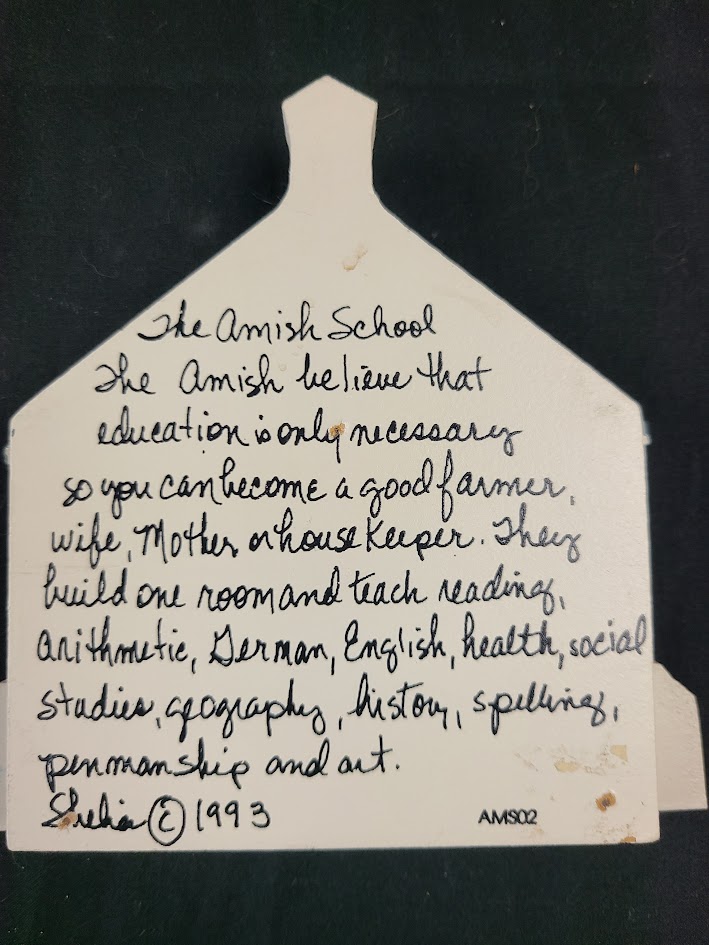 The Amish School
The Amish believe that
education is only necessary
so you can become a good farmer,
wife, Mother or house Keeper. They
build one room and teach reading,
arithmetic, German, English, health, social
studies, geography, history, spelling,
penmanship and art.
Shelia © 1993 AMS02